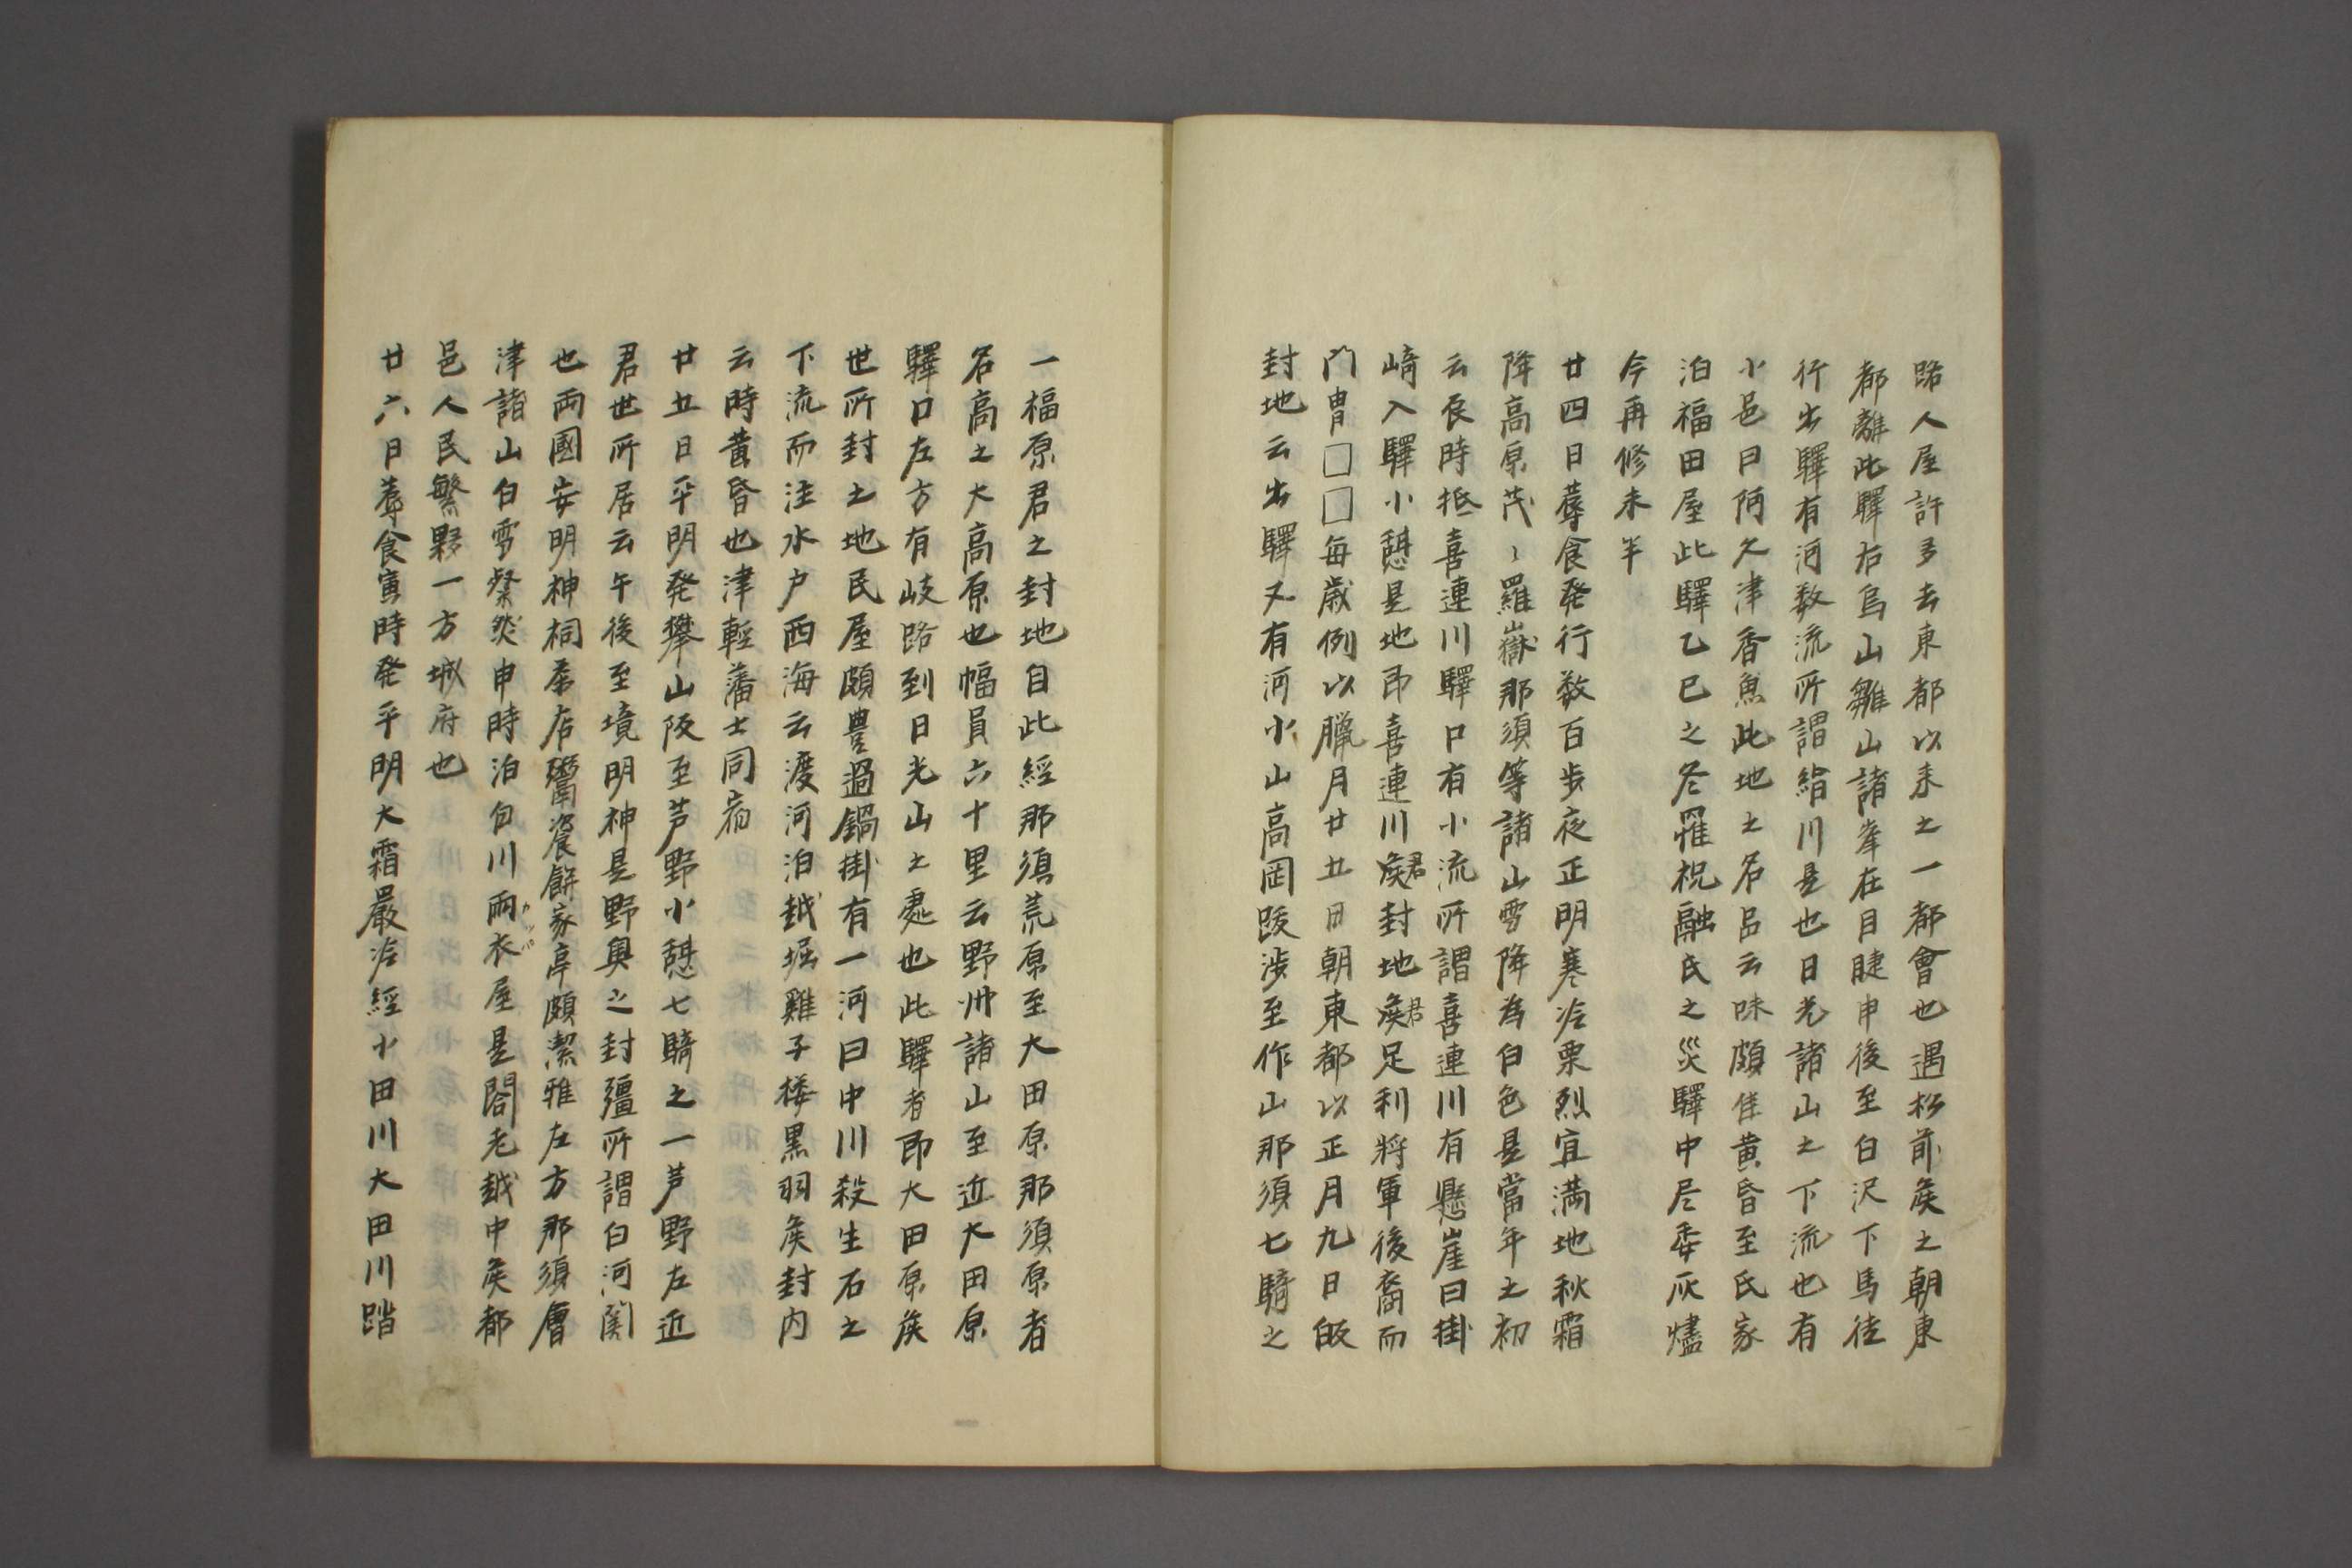 路人屋許多去東都以来之一都會也遇松前矦之朝東
都離此驛右烏山雛山諸峯在目睫申後至白沢下馬徒
行出驛有河数流所謂絹川是也日光諸山之下流也有
小邑曰阿久津香魚此地之名品云味頗佳黄昏至氏家
泊福田屋此驛乙巳之冬罹祝融氏之災驛中尽委灰燼
今再修未半
廿四日蓐食発行数百歩夜正明寒冷栗烈宜満地秋霜
降高原茂〻羅嶽那須等諸山雪降為白色是當年之初
云辰時抵喜連川驛口有小流所謂喜連川有懸崖曰掛
崎入驛小憩是地即喜連川矦君封地矦君足利將軍後裔而
門冑□□毎歳例以臘月廿五日朝東都以正月九日皈
封地云出驛又有河小山高岡跋渉至作山那須七騎之
一福原君之封地自此經那須荒原至大田原那須原者
名高之大高原也幅員六十里云野州諸山至近大田原
驛口左方有岐路到日光山之處也此驛者即大田原矦
世所封之地民屋頗豊過鍋掛有一河曰中川殺生石之
下流而注水户西海云渡河泊越堀雞子楼黒羽矦封内
云時黄昏也津輕藩士同宿
廿五日平明発攀山阪至芦野小憩七騎之一芦野左近
君世所居云午後至境明神是野奥之封疆所謂白河関
也両國安明神祠茶店鬻餈餅家亭頗潔雅左方那須會
津諸山白雪粲然申時泊白川雨衣カッパ屋是閣老越中矦都
邑人民繁夥一方城府也
廿六日蓐食寅時発平明大霜嚴冷經小田川大田川踏